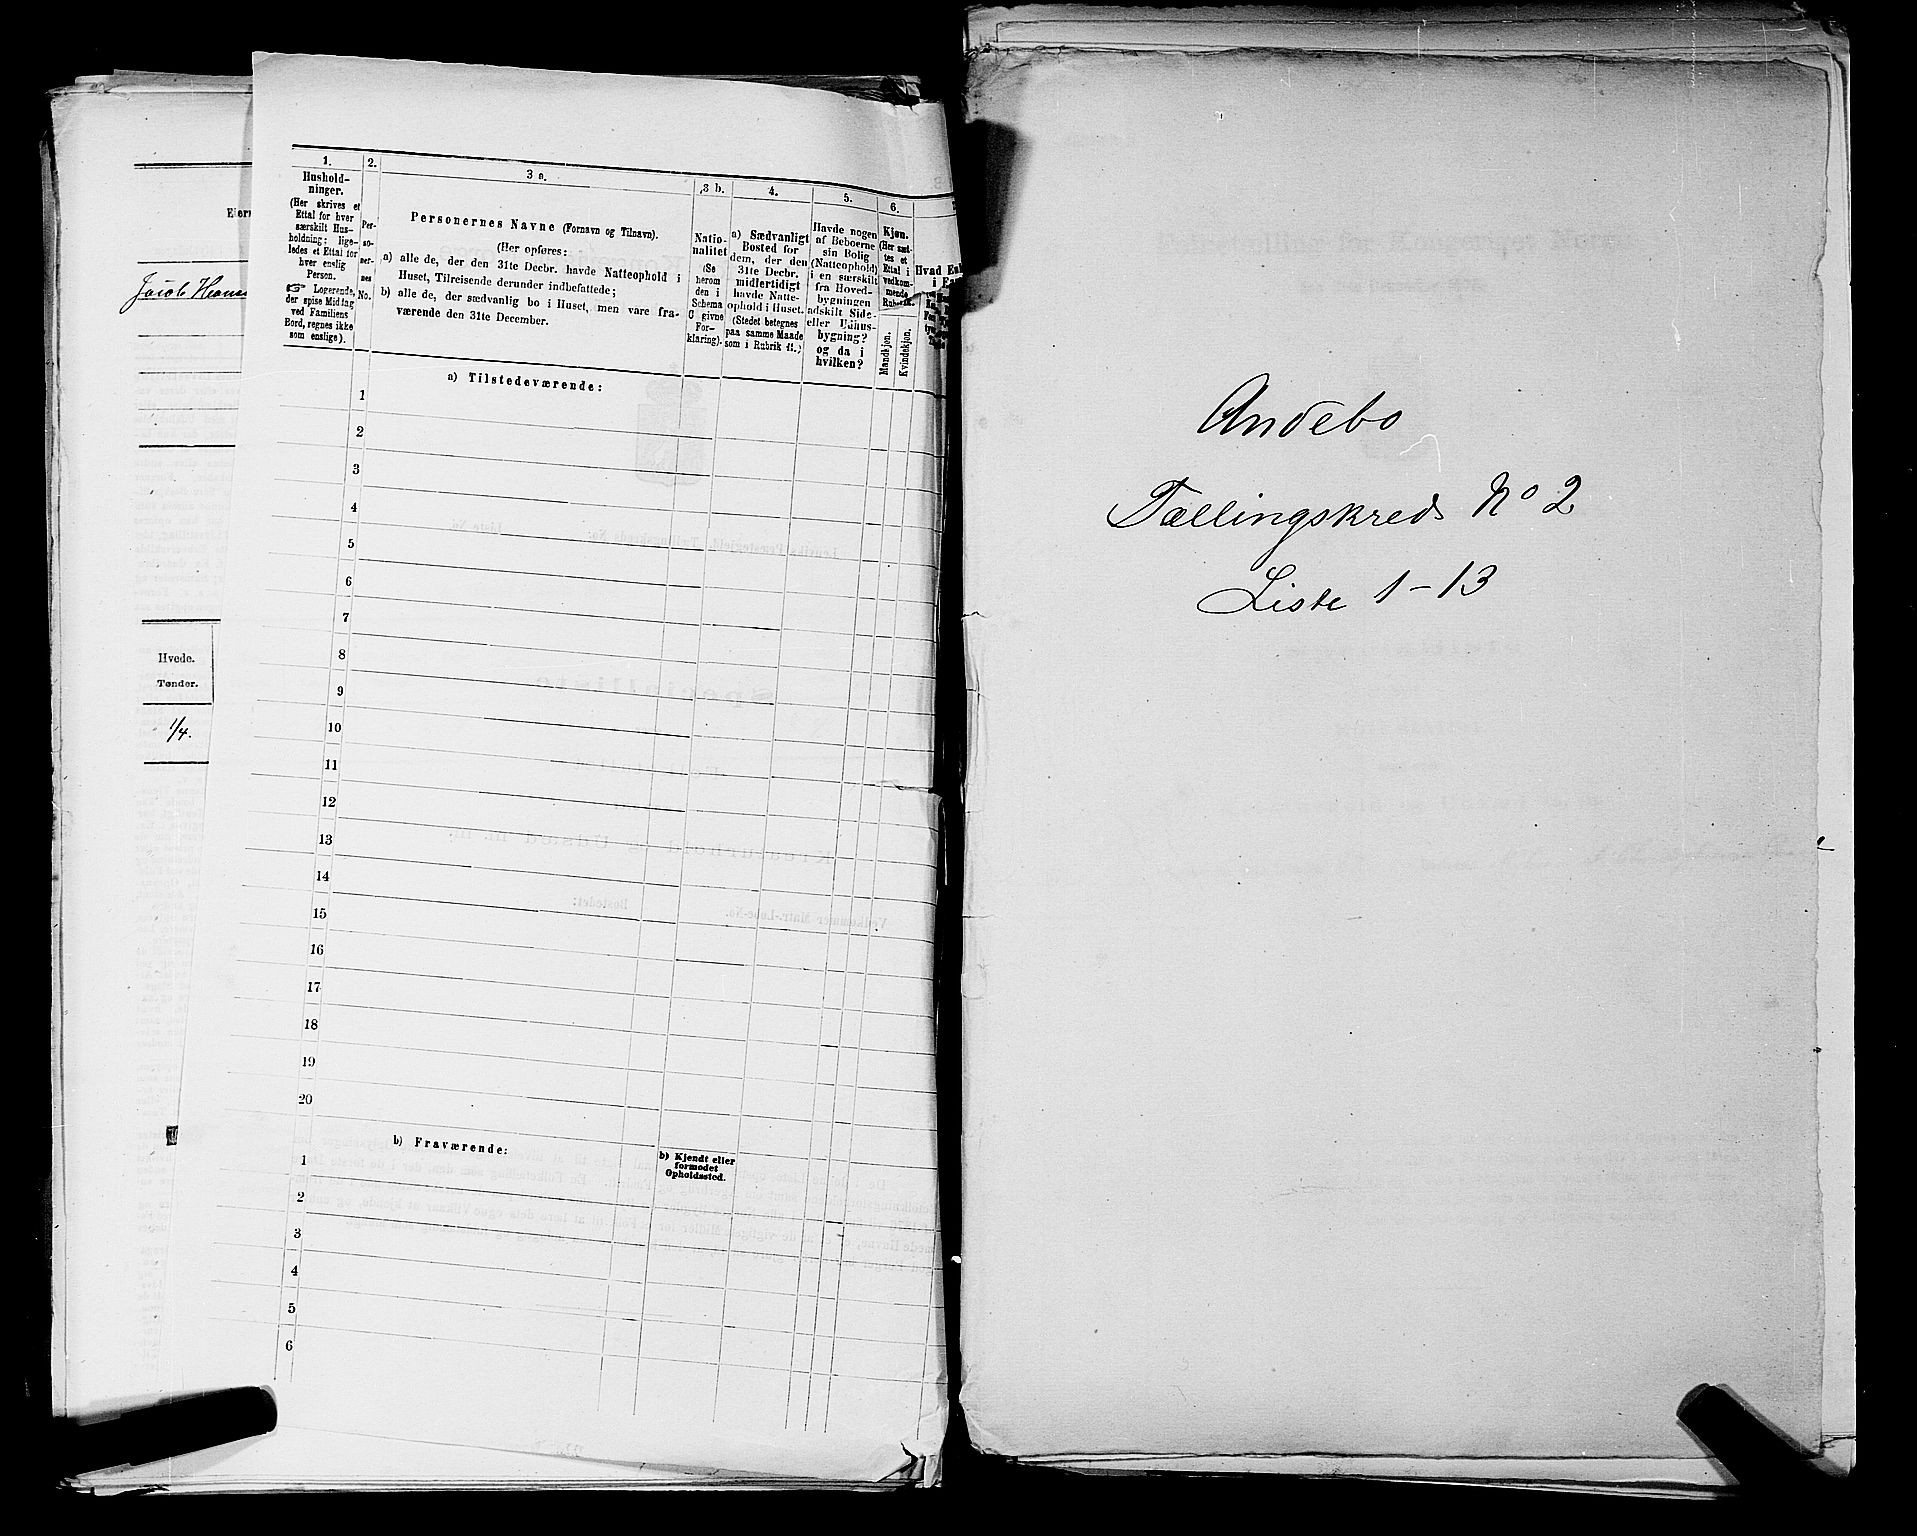 Jacob
Hvede.
Tønder.
1/4.
1.
Hushold-
ninger.
(Her skrives et
Ettal for hver
særskilt Hus-
holdning; lige-
ledes et Ettal for
hver enslig
Person.
☞ Logerende,
der spise Middag
ved Familiens
Bord, regnes ikke
som enslige).
2.
Per-
so-
ner-
nes
No.
3 a.
Personernes Navne (Fornavn og Tilnavn).
(Her opføres:
a) alle de, der den 31te Decbr. havde Natteophold i
Huset, Tilreisende derunder indbefattede;
b) alle de, der sædvanlig bo i Huset, men vare fra-
værende den 31te December.
3 b.
Natio-
nalitet
(Se
herom
den i
Schema
C givne
For-
klaring).
4.
a) Sædvanligt
Bosted for
dem, der den
31te Decbr.
midlertidigt
havde Natte-
ophold i Huset.
(Stedet betegnes
paa samme Maade
som i Rubrik 11.)
5.
Havde nogen
af Beboerne
sin Bolig
(Natteophold)
i en særskilt
fra Hoved-
bygningen
adskilt Side-
eller Udhus-
bygning?
og da i
hvilken?
6.
Kjøn.
(Her sæt-
tes et
Ettal i
vedkom-
mende
Rubrik.
Mandkjøn.
Kvindekjøn.
a) Tilstedeværende:
1
2
3
4
5
6
7
8
9
10
11
12
13
14
15
16
17
18
19
20
b) Fraværende:
b) Kjendt eller
formodet
Opholdssted.
1
2
3
4
5
6
Andebo
Tællingskreds No 2
Liste 1-13